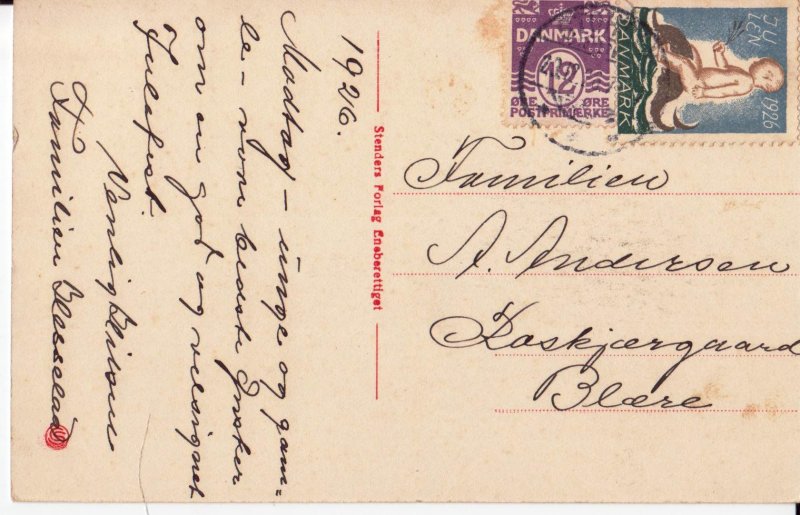 1926.
Modtag - unge og gam=
le - vore bedste Ønsker
om en god og velsignet
Julefest.
Venlig Hilsen
Familien
Stenders Forlag Eneberettiget
DANMARK
12
ØRE ØRE
POSTFRIMÆRKE
JULEN
1926
DANMARK
Familien
A. Andersen
Koskjærgaard
Blære